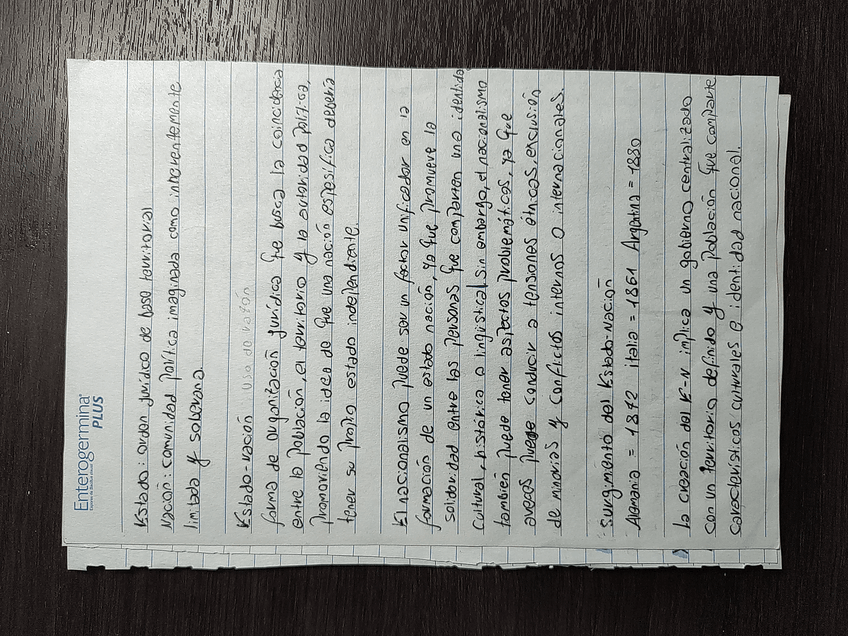 Enterogermina
PLUS
Estado: orden jurídico de base territorial
Nación: comunidad política imaginada como inherentemente
limitada y soberana.
Estado-nación uso de razón
forma de organización jurídica que busca la coincidencia
entre la población, el territorio y la autoridad política,
promoviendo la idea de que una nación espesifica debería
tener su propio estado independiente.
El nacionalismo puede ser un factor unificador en la
formación de un estado nación, ya que promueve la
solidaridad entre las personas que comparten una identidad
cultural, histórica o lingüística. Sin embargo, el nacionalismo
también puede tener aspectos problemáticos, ya que
aveces puede conducir a tensiones étnicas, exclusión
de minorias y conflictos internos o internacionales.
surgimiento del Estado-Nación
Alemania = 1872 italia = 1861 Argentina = 1880
la creación del E-N implica un gobierno centralizado
con un territorio definido y una población que comparte
características culturales e identidad nacional.